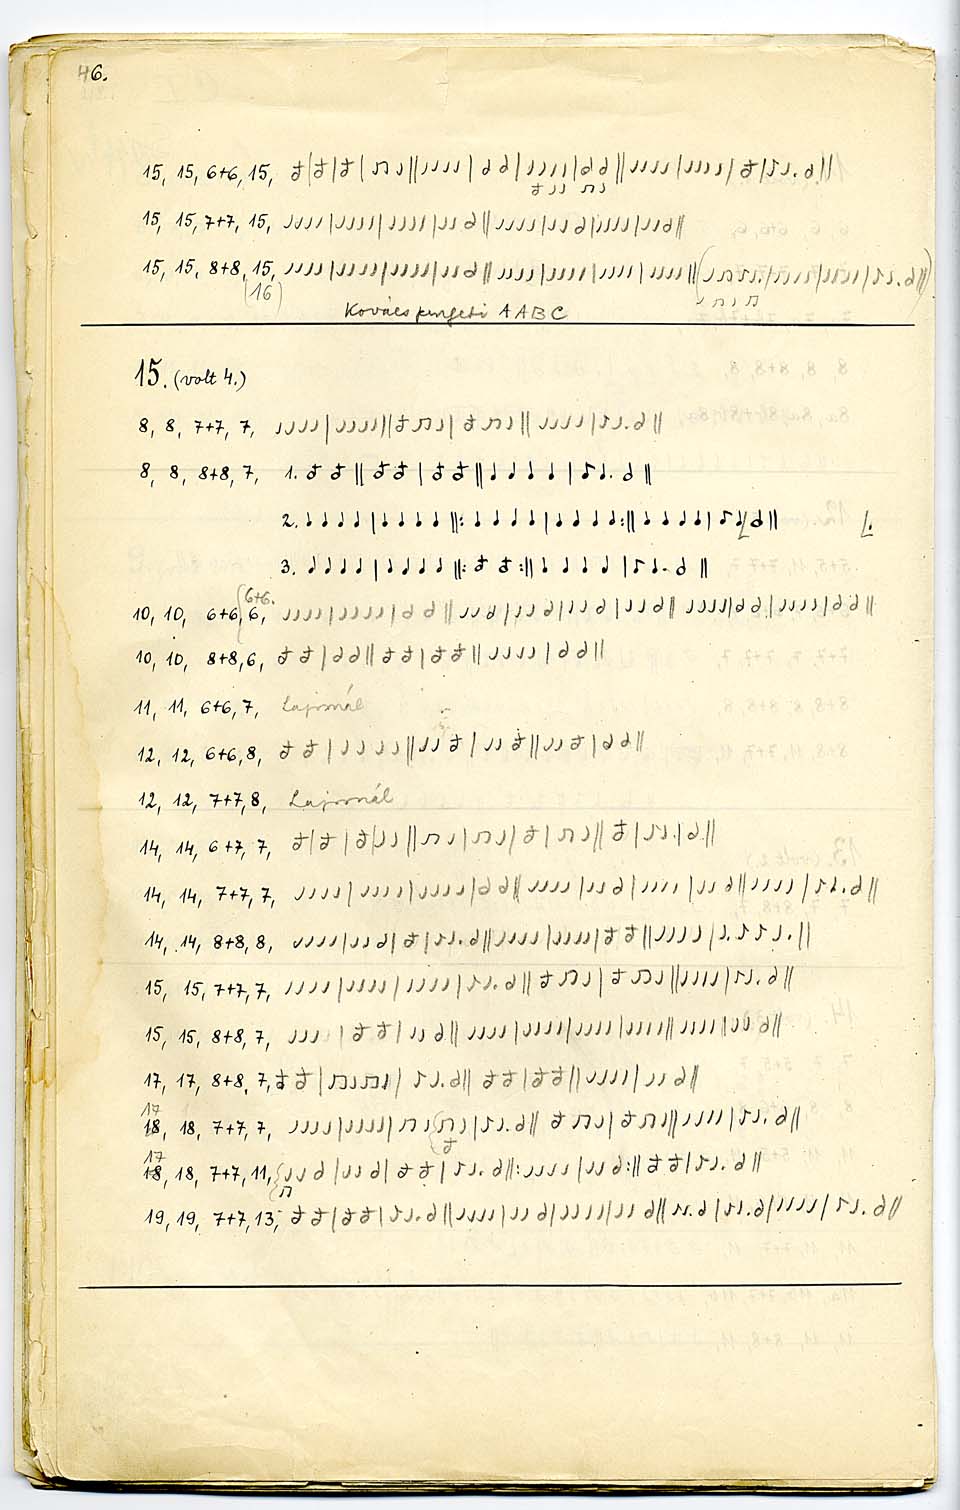 46.
15, 15, 6+6, 15,
15, 15, 7+7, 15,
15, 15, 8+8, 15,
(16)
AABC
15. (volt 4.)
8, 8, 7+7, 7,
8, 8, 8+8, 7, 1.
2.
3.
6+6.
10, 10, 6+6, 6,
10, 10, 8+8, 6,
11, 11, 6+6, 7,
12, 12, 6+6, 8,
12, 12, 7+7, 8,
14, 14, 6+7, 7,
14, 14, 7+7, 7,
14, 14, 8+8, 8,
15, 15, 7+7, 7,
15, 15, 8+8, 7,
17, 17, 8+8, 7,
17
18, 18, 7+7, 7,
17
18, 18, 7+7, 11,
19, 19, 7+7, 13,